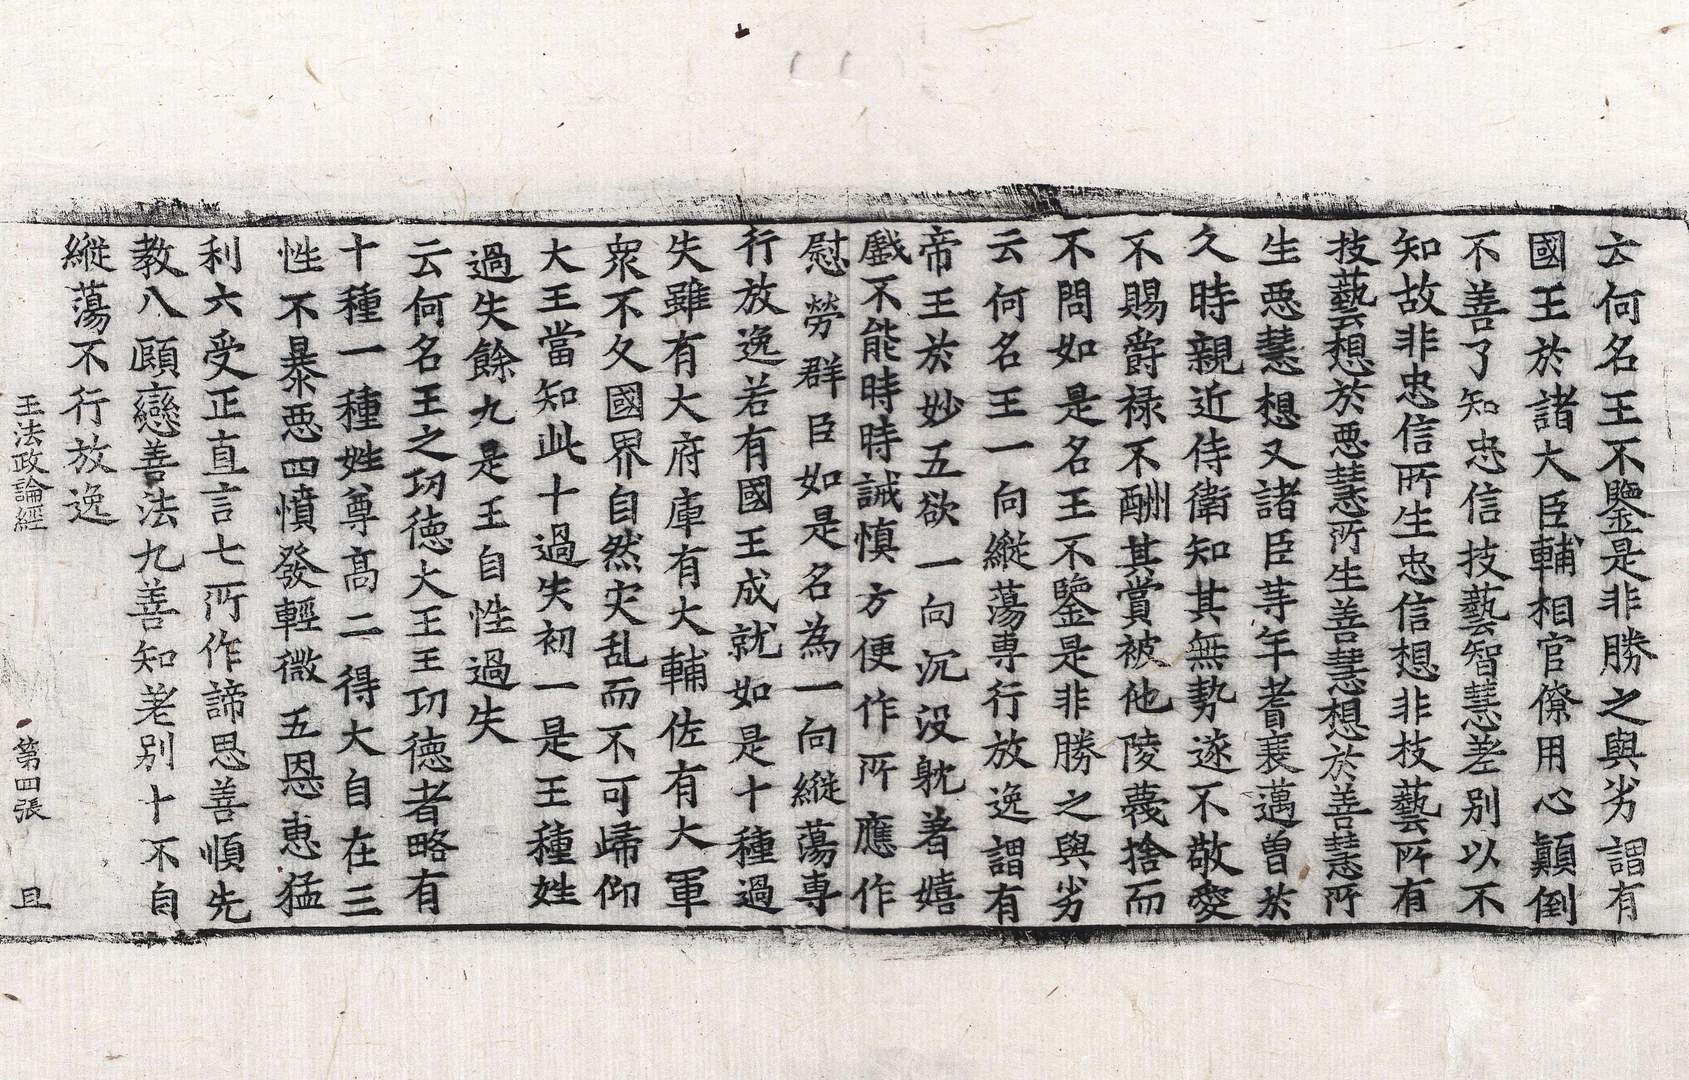 云何名王不鑒是非勝之與劣謂有
國王於諸大臣輔相官僚用心顚倒
不善了知忠信技藝智慧差别以不
知故非忠信所生忠信想非技藝所有
技藝想於悪慧所生善慧想於善慧所
生悪慧想又諸臣䓁年耆衰邁曽於
久時親近侍衛知其無勢遂不敬愛
不賜爵禄不酬其賞被他陵蔑捨而
不問如是名王不鑒是非勝之與劣
云何名王一向縱蕩専行放逸謂有
帝王於妙五欲一向沉没躭著嬉
戲不能時時誡慎方便作所應作
慰勞群臣如是名為一向縱蕩専
行放逸若有國王成就如是十種過
失雖有大府庫有大輔佐有大軍
衆不久國界自然灾乱而不可歸仰
大王當知此十過失初一是王種姓
過失餘九是王自性過失
云何名王之㓛德大王王㓛德者略有
十種一種姓尊髙二得大自在三
性不暴悪四憤發輕微五恩惠猛
利六受正直言七所作諦思善順先
教八顧戀善法九善知差别十不自
縱蕩不行放逸
王法政論經　第四張　且